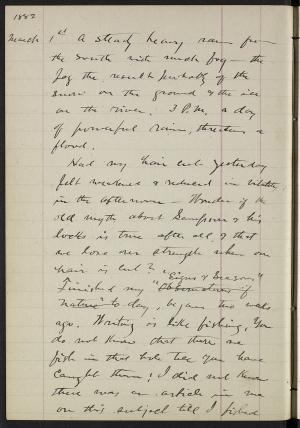 1882
March 1st A steady heavy rain from
the South with much fog — the
fog the result probably of the
snow on the ground & the ice
on the river. 3 P.M. a day
of powerful rain, threatens a
flood.
Had my hair cut yesterday
felt weakened & reduced in vitality
in the afternoon — Wonder if the
old myth about Sampson & his
locks is true after all, & that
we lose our strength when our
hair is cut?
"Signs & Seasons"
Finished my "Observations of
Nature" to-day, began two weeks
ago. Writing is like fishing, you
do not know that there are
fish in that hole till you have
caught them; I did not know
there was an article in me
on this subject till I fished